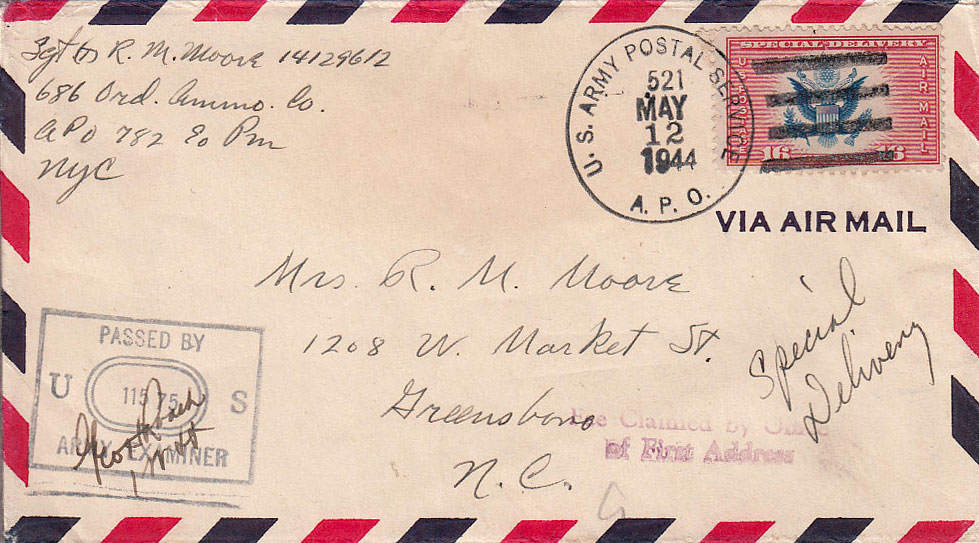 Sgt R. M. Moore 14129612
686 Ord. Ammo. Co.
APO 782 Pm
NYC
U. S. ARMY POSTAL SERVICE
521
MAY
12
1944
A. P. O.
SPECIAL DELIVERY
U S POSTAGE
AIR MAIL
16 16
VIA AIR MAIL
Mrs. R. M. Moore
1208 W. Market St.
Greensboro
N.C.
Special
Delivery
PASSED BY
U S
ARMY EXAMINER
Fee Claimed by
of First Address